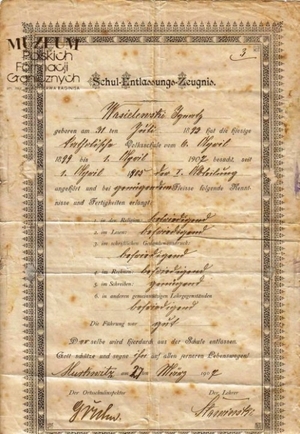 MUZEUM
Polskich
Formacji
Granicznych
3
Schul-Entlassungs-Zeugnis.
Wasielewski Ignatz
geboren am 31 ten Juli 1893 hat die hiesige
katholische Volksschule vom 6. April
1899 bis 1. April 1907 besucht, seit
1. April 1905 der I. Abteilung
angehört und bei genügendem Fleisse folgende Kennt-
nisse und Fertigkeiten erlangt:
1. in der Religion: befriedigend
2. im Lesen: befriedigend
3. im schriftlichen Gedankenausdruck:
befriedigend
4. im Rechnen: befriedigend
5. im Schreiben: genügend
6. in anderen gemeinnützigen Lehrgegenständen
befriedigend
Die Führung war gut
Derselbe wird hierdurch aus der Schule entlassen.
Gott schütze und segne ihn auf allen ferneren Lebenswegen!
den 27 ten März 1907
Der Ortsschulinspektor
Der Lehrer